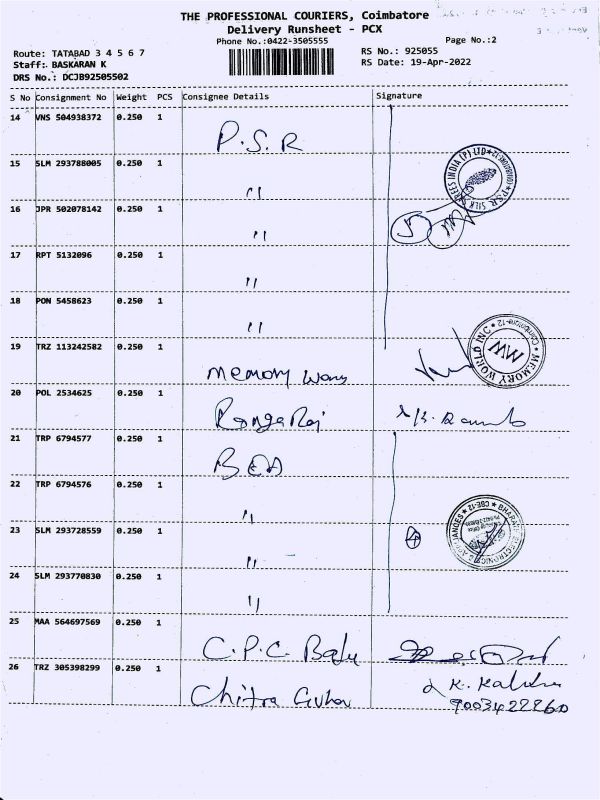 THE PROFESSIONAL COURIERS, Coimbatore
Delivery Runsheet - PCX
Phone No.:0422-3505555
Page No.:2
Route: TATABAD 3 4 5 6 7
RS No.: 925055
Staff: BASKARAN K
RS Date: 19-Apr-2022
DRS No.: DCJB92505502
S No Consignment No Weight PCS Consignee Details Signature
14 VNS 504938372 0.250 1 P.S.R
15 SLM 293788005 0.250 1 "
P.S.R. SILK SAREES INDIA (P) LTD
16 JPR 502078142 0.250 1 "
5
17 RPT 5132096 0.250 1 "
18 PON 5458623 0.250 1 "
19 TRZ 113242582 0.250 1 Memory
MEMORY WORLD INC Coimbatore-12
MW
20 POL 2534625 0.250 1
21 TRP 6794577 0.250 1
22 TRP 6794576 0.250 1 "
23 SLM 293728559 0.250 1 "
4
BHARAT ELECTRONICS & APPLIANCES CBE-12
24 SLM 293770830 0.250 1 "
25 MAA 564697569 0.250 1 C.P.C.
26 TRZ 305398299 0.250 1 Chitra
K.
9003422860